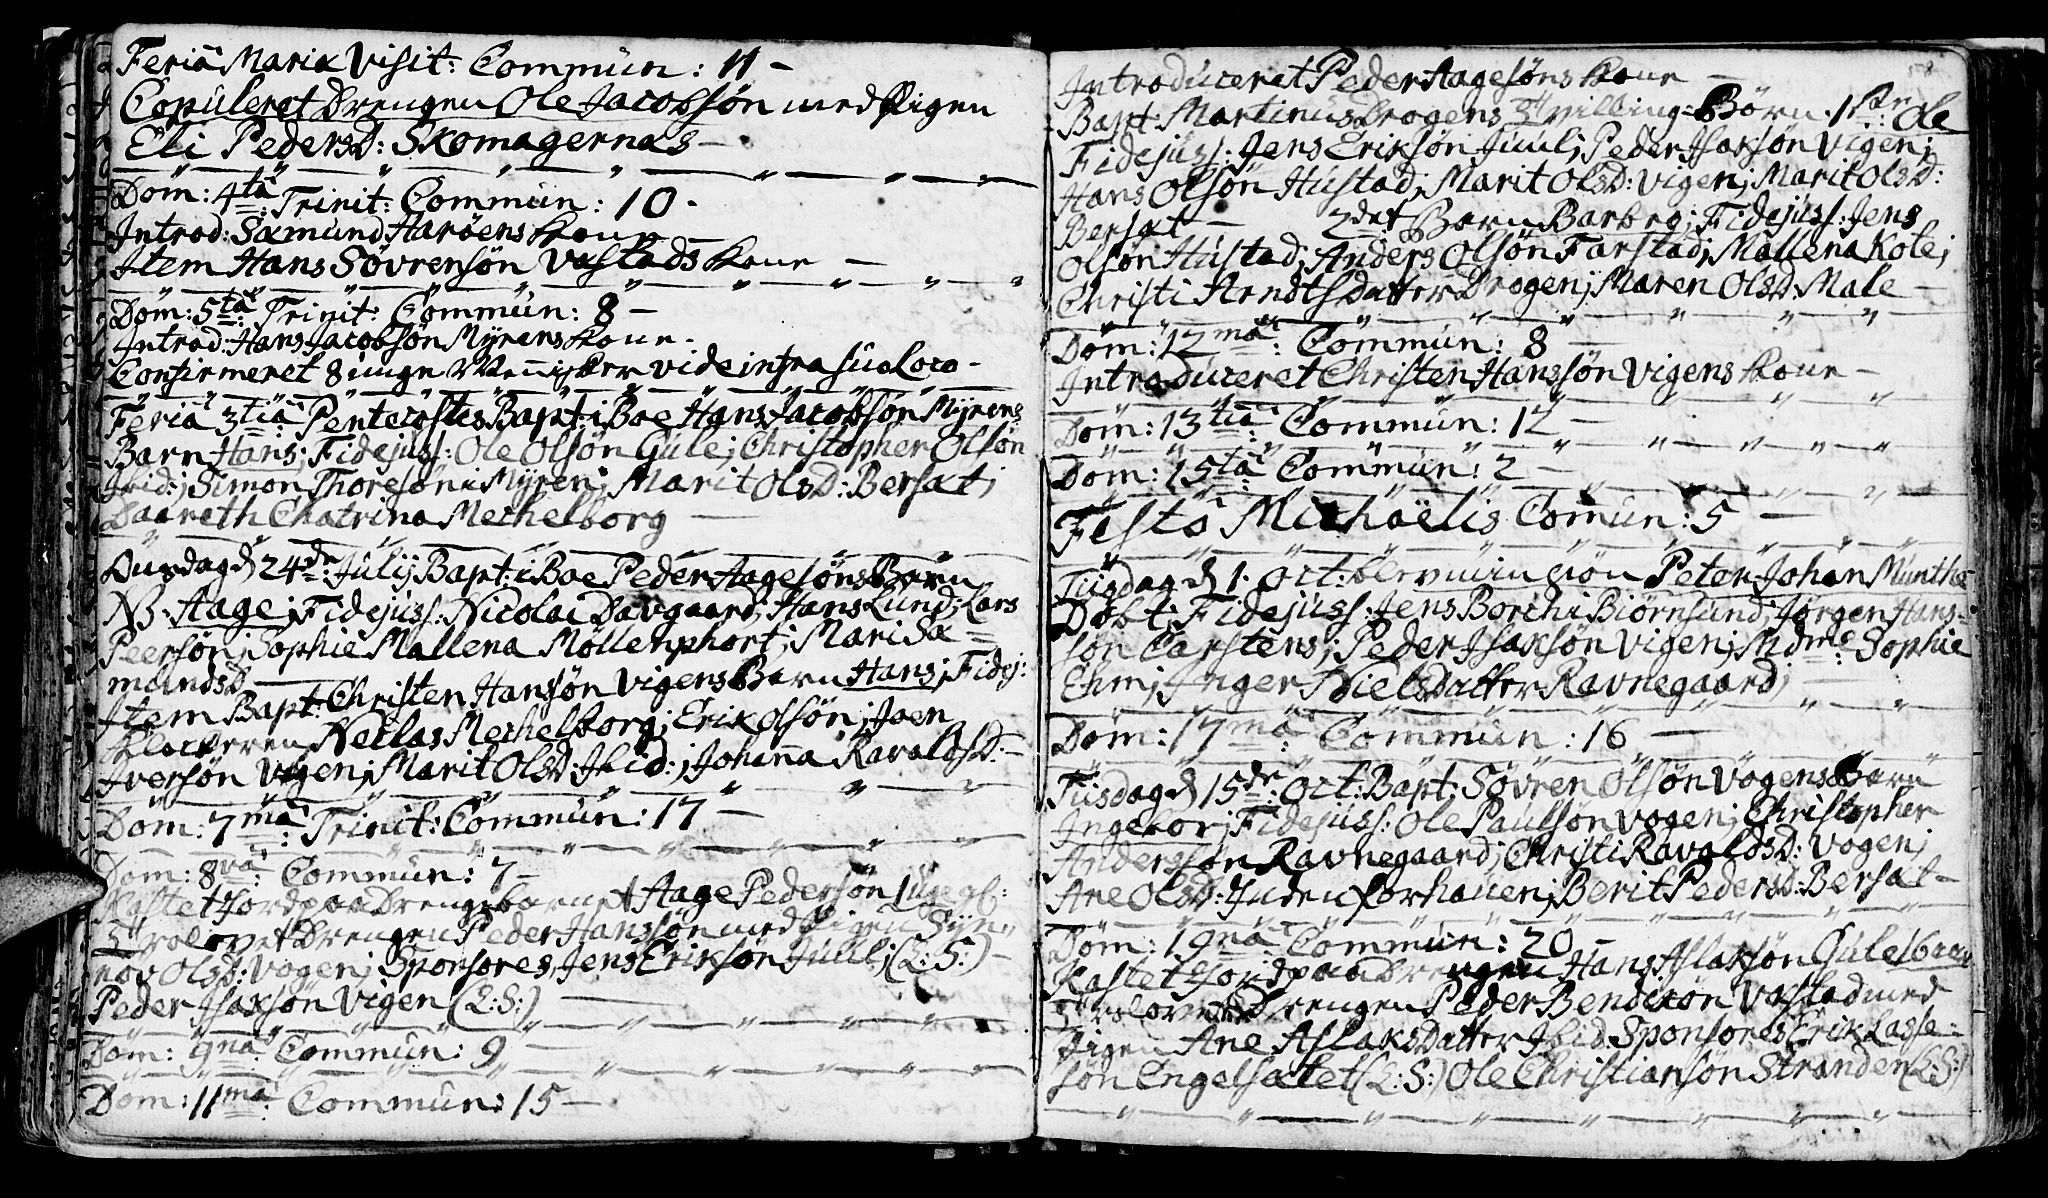 Feriâ Mariæ Visit: Commun: 11 –
Copuleret Drengen Ole Jacobsøn med Pigen
Eli Pedersd: Skomagernæs –
Dom: 4ta Trinit: Commun: 10 -
Introd: Sæmund Harøens Kone –
Item Hans Søvrensøn Vastads Kone –
Dom: 5ta Trinit: Commun: 8 –
Introd: Hans Jacobsøn Myrens Kone -
Confirmeret 8 unge Mennisker vide infra suo Loco -
Feriâ 3tiâ Pentecostes Bapt: i Boe Hans Jacobsøn Myrens
Barn Hans; Fidejuss: Ole Olsøn Gule; Christopher Olsøn
Ibid:; Simon Thoresøn i Myren; Marit Olsd: Bersæt;
Daareth Chatrina Mechelborg –
Onsdag d 24de Julij Bapt: i Boe Peder Aagesøns Barn
NB. Aage; Fidejuss: Nicolai Davgaard; Hans Lund; Lars
Peersøn; Sophie Mallena Møllenphort; Mari Sæ=
mundsd –
Item Bapt: Christen Hansøn Vigens Barn Hans; Fidej:
Klockeren Neclas Mechelborg; Erik Olsøn; Joen
Iversøn Vogen; Marit Olsd: Ibid:; Johanna Ravaldsd: –
Dom: 7ma Trinit: Commun: 17 –
Dom: 8va: Commun: 7 –
Kastet Jord paa Drengebarnet Aage Pedersøn 1 Uge gl:
Trolovet Drengen Peder Hanssøn med Pigen Syn=
nøv Olsd: Vogen; Sponsores, Jens Eriksøn Juul; (L: S:) –
Peder Isaksøn Vigen (L: S:) –
Dom: 9na: Commun: 9 –
Dom: 11ma: Commun: 15 –
58
Introduceret Peder Aagesøns Kone –
Bapt: Martinus Drogens Tvilling-Børn. 1ste: Ole
Fidejuss: Jens Eriksøn Juul; Peder Isaksøn Vigen;
Hans Olsøn Hustad; Marit Olsd: Vigen; Marit Olsd:
Bersæt – 2det Barn Barbro; Fidejuss: Jens
Olsøn Hustad; Anders Olsøn Farstad; Mallena Kole;
Christi Arndtsdatter Drogen; Maren Olsd: Male –
Dom: 12ma: Commun: 8 –
Introduceret Christen Hanssøn Vigens Kone –
Dom: 13tia: Commun: 12 –
Dom: 15ta Commun: 2 –
Festo Michaëlis Comun: 5 –
Tiisdag d 1. Oct: Peter Johan Munthe
Døbt; Fidejuss: Jens Borch i Biørnsund; Jørgen Hans=
søn Carstens; Peder Isaksøn Vigen; Madme: Sophie
Ehm; Inger Nielsdatter Ravnegaard; –
Dom: 17ma Commun: 16 –
Tiisdag d 15de: Oct: Bapt: Søvren Olsøn Vogens Barn
Ingebor; Fidejuss: Ole Paulsøn Vogen; Christopher
Anderssøn Ravnegaard; Christi Ravaldsd: Vogen;
Ane Olsd: Inden forhauen; Berit Pedersd: Bersæt –
Dom: 19na Commun: 20 –
Kastet Jord paa Drengen Hans Aslaksøn Gulesbæer
Trolovet Drengen Peder Bendixøn Vastad med
Pigen Ane Aslaksdatter Ibid: Sponsores Erik Lasse=
søn Engelsætet (L: S:) Ole Christiansøn Stranden (L: S:)